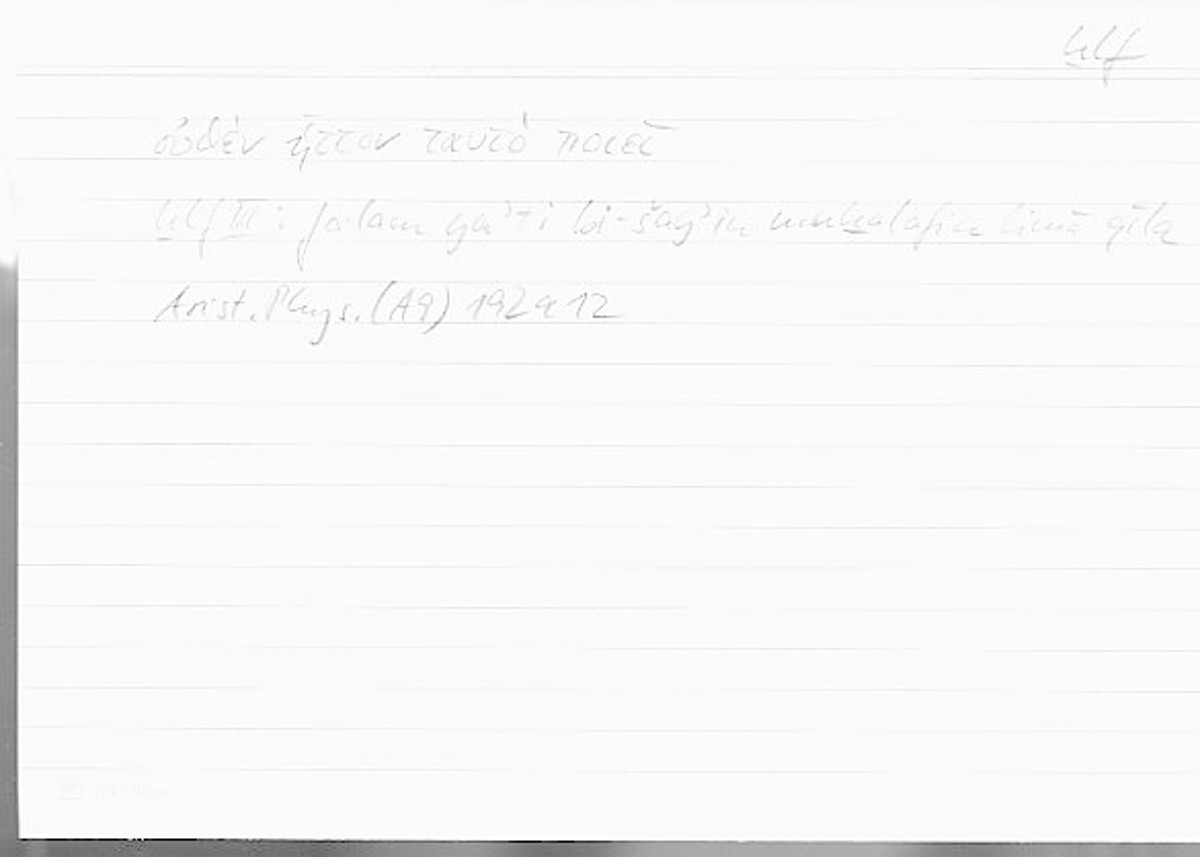 ḫlf
οὐδὲν ἧττον ταὐτὸ ποιεῖ
ḫlf III : fa-lam yaʾti bi-šayʾin muḫalafin limā qīla
Arist. Phys. (A9) 192a12